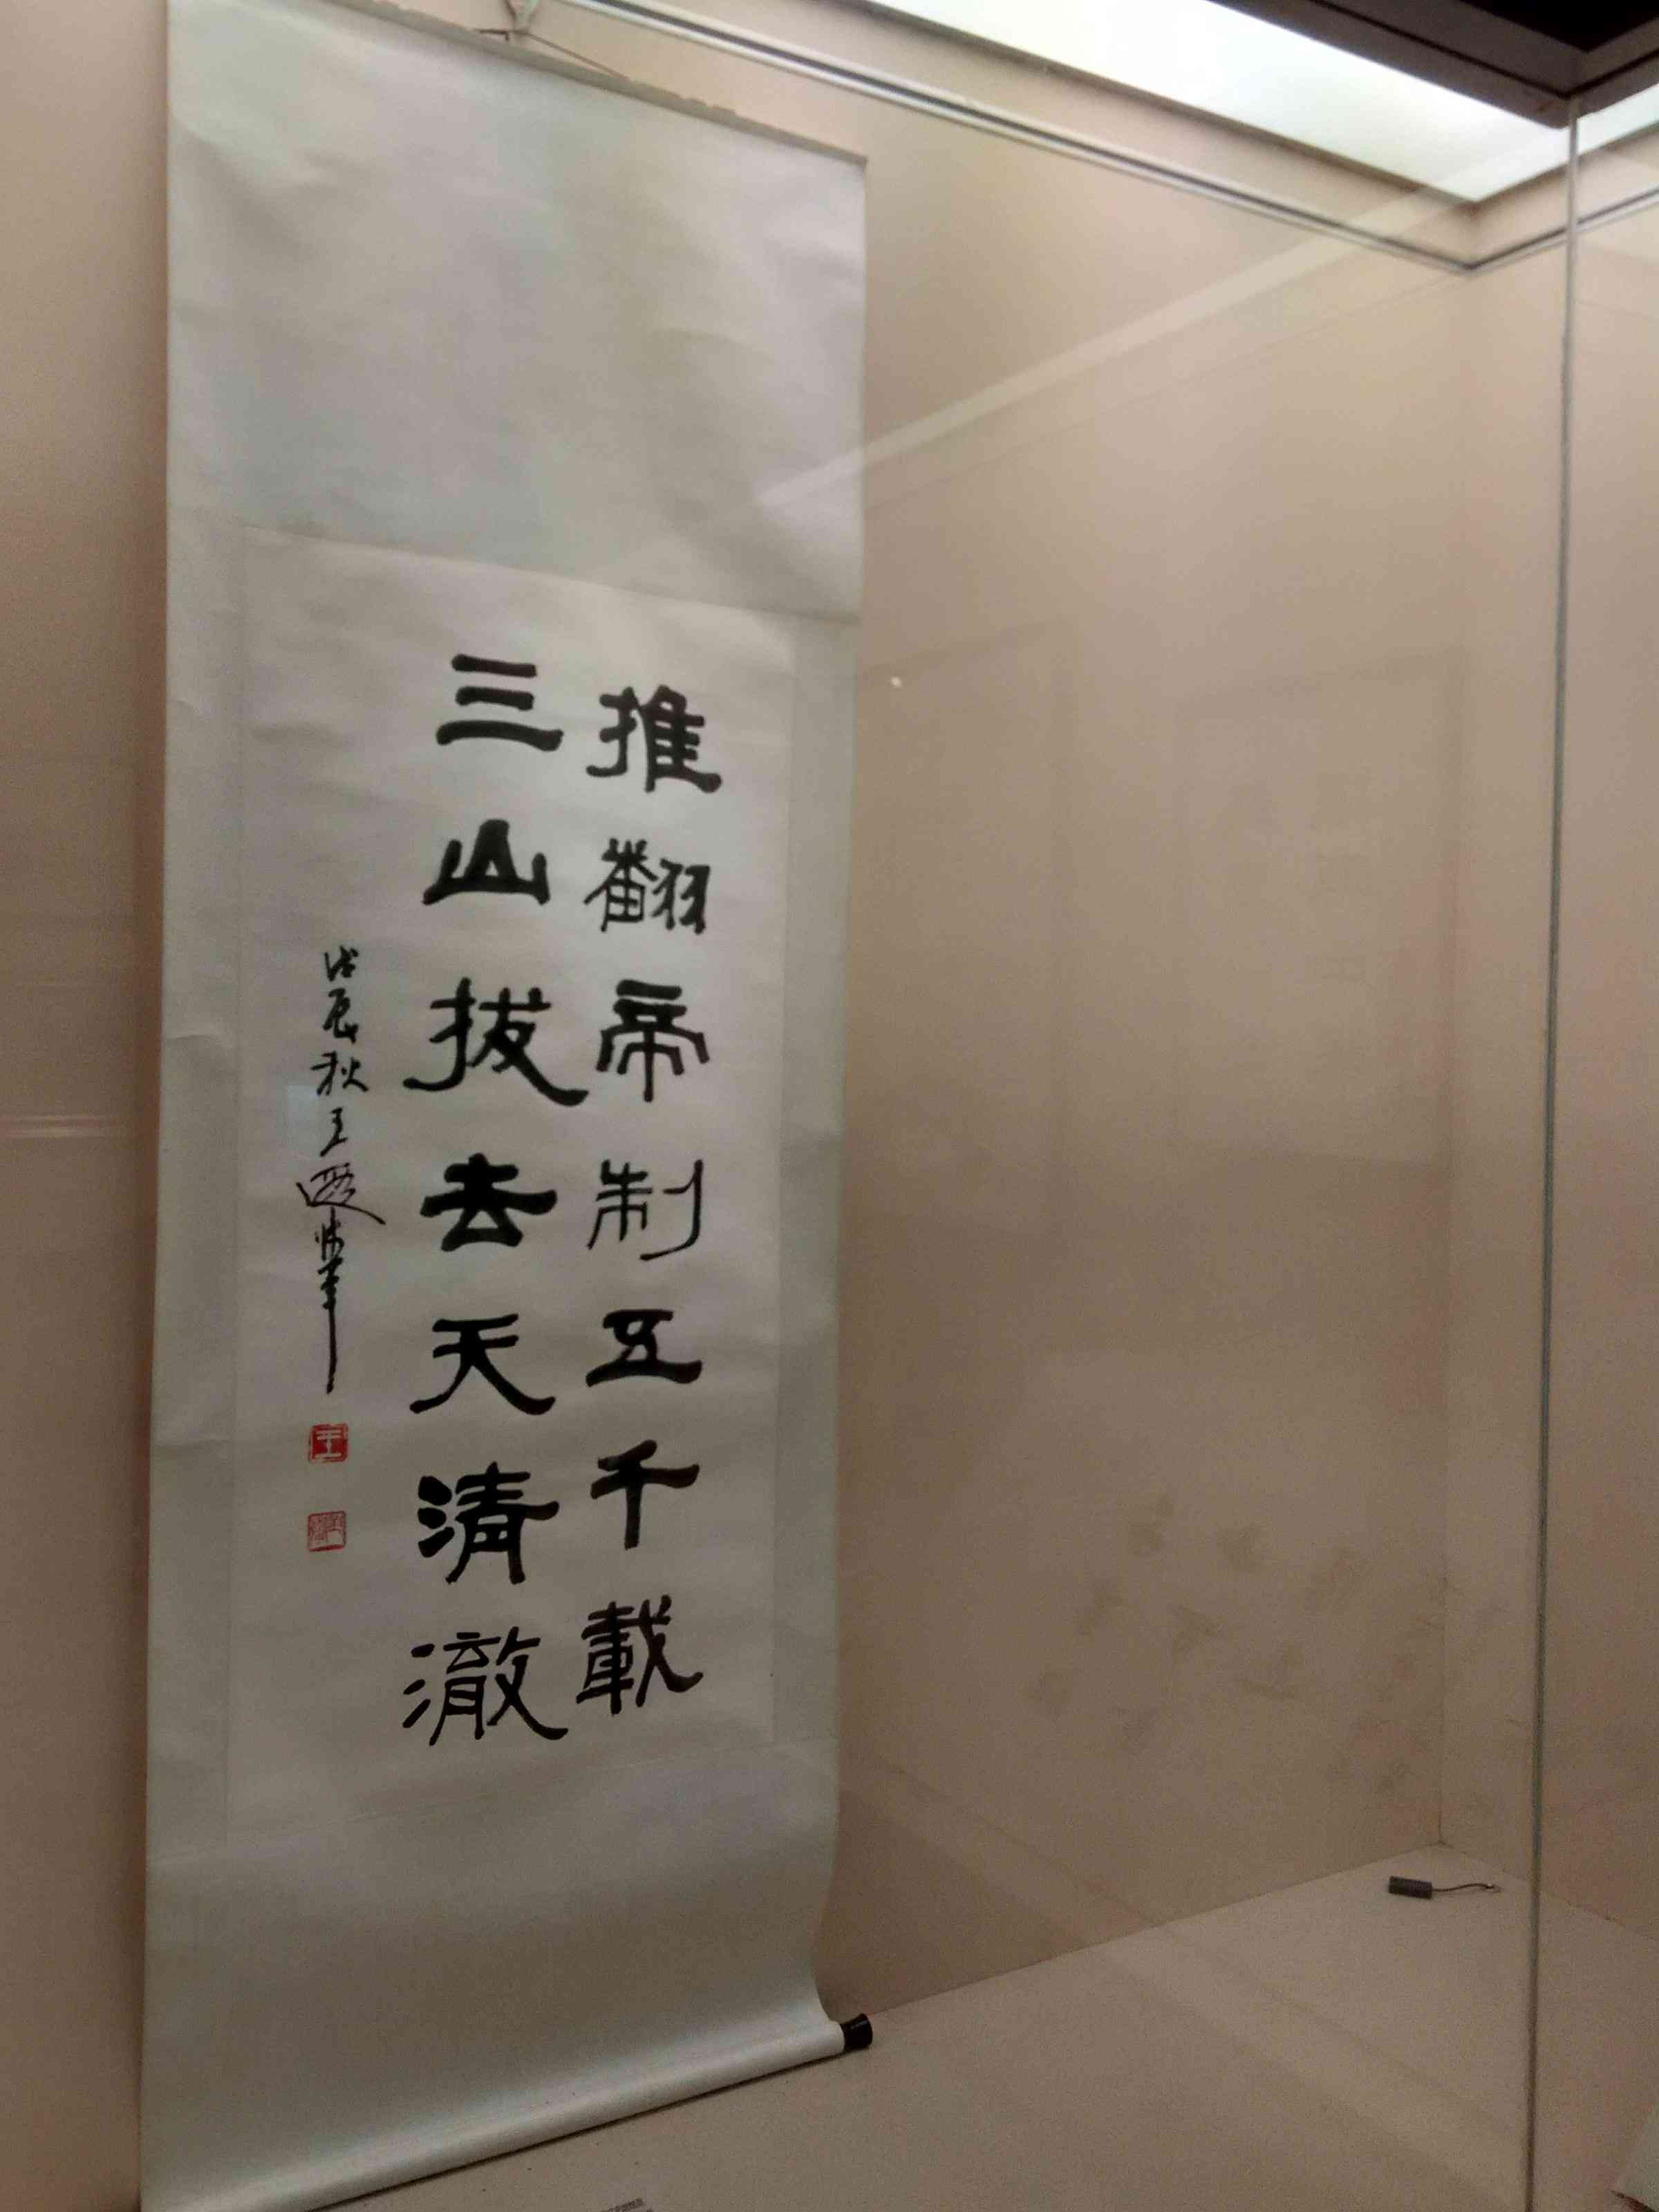 推翻帝制五千載
三山拔去天清澈
戊辰秋王遐举
王